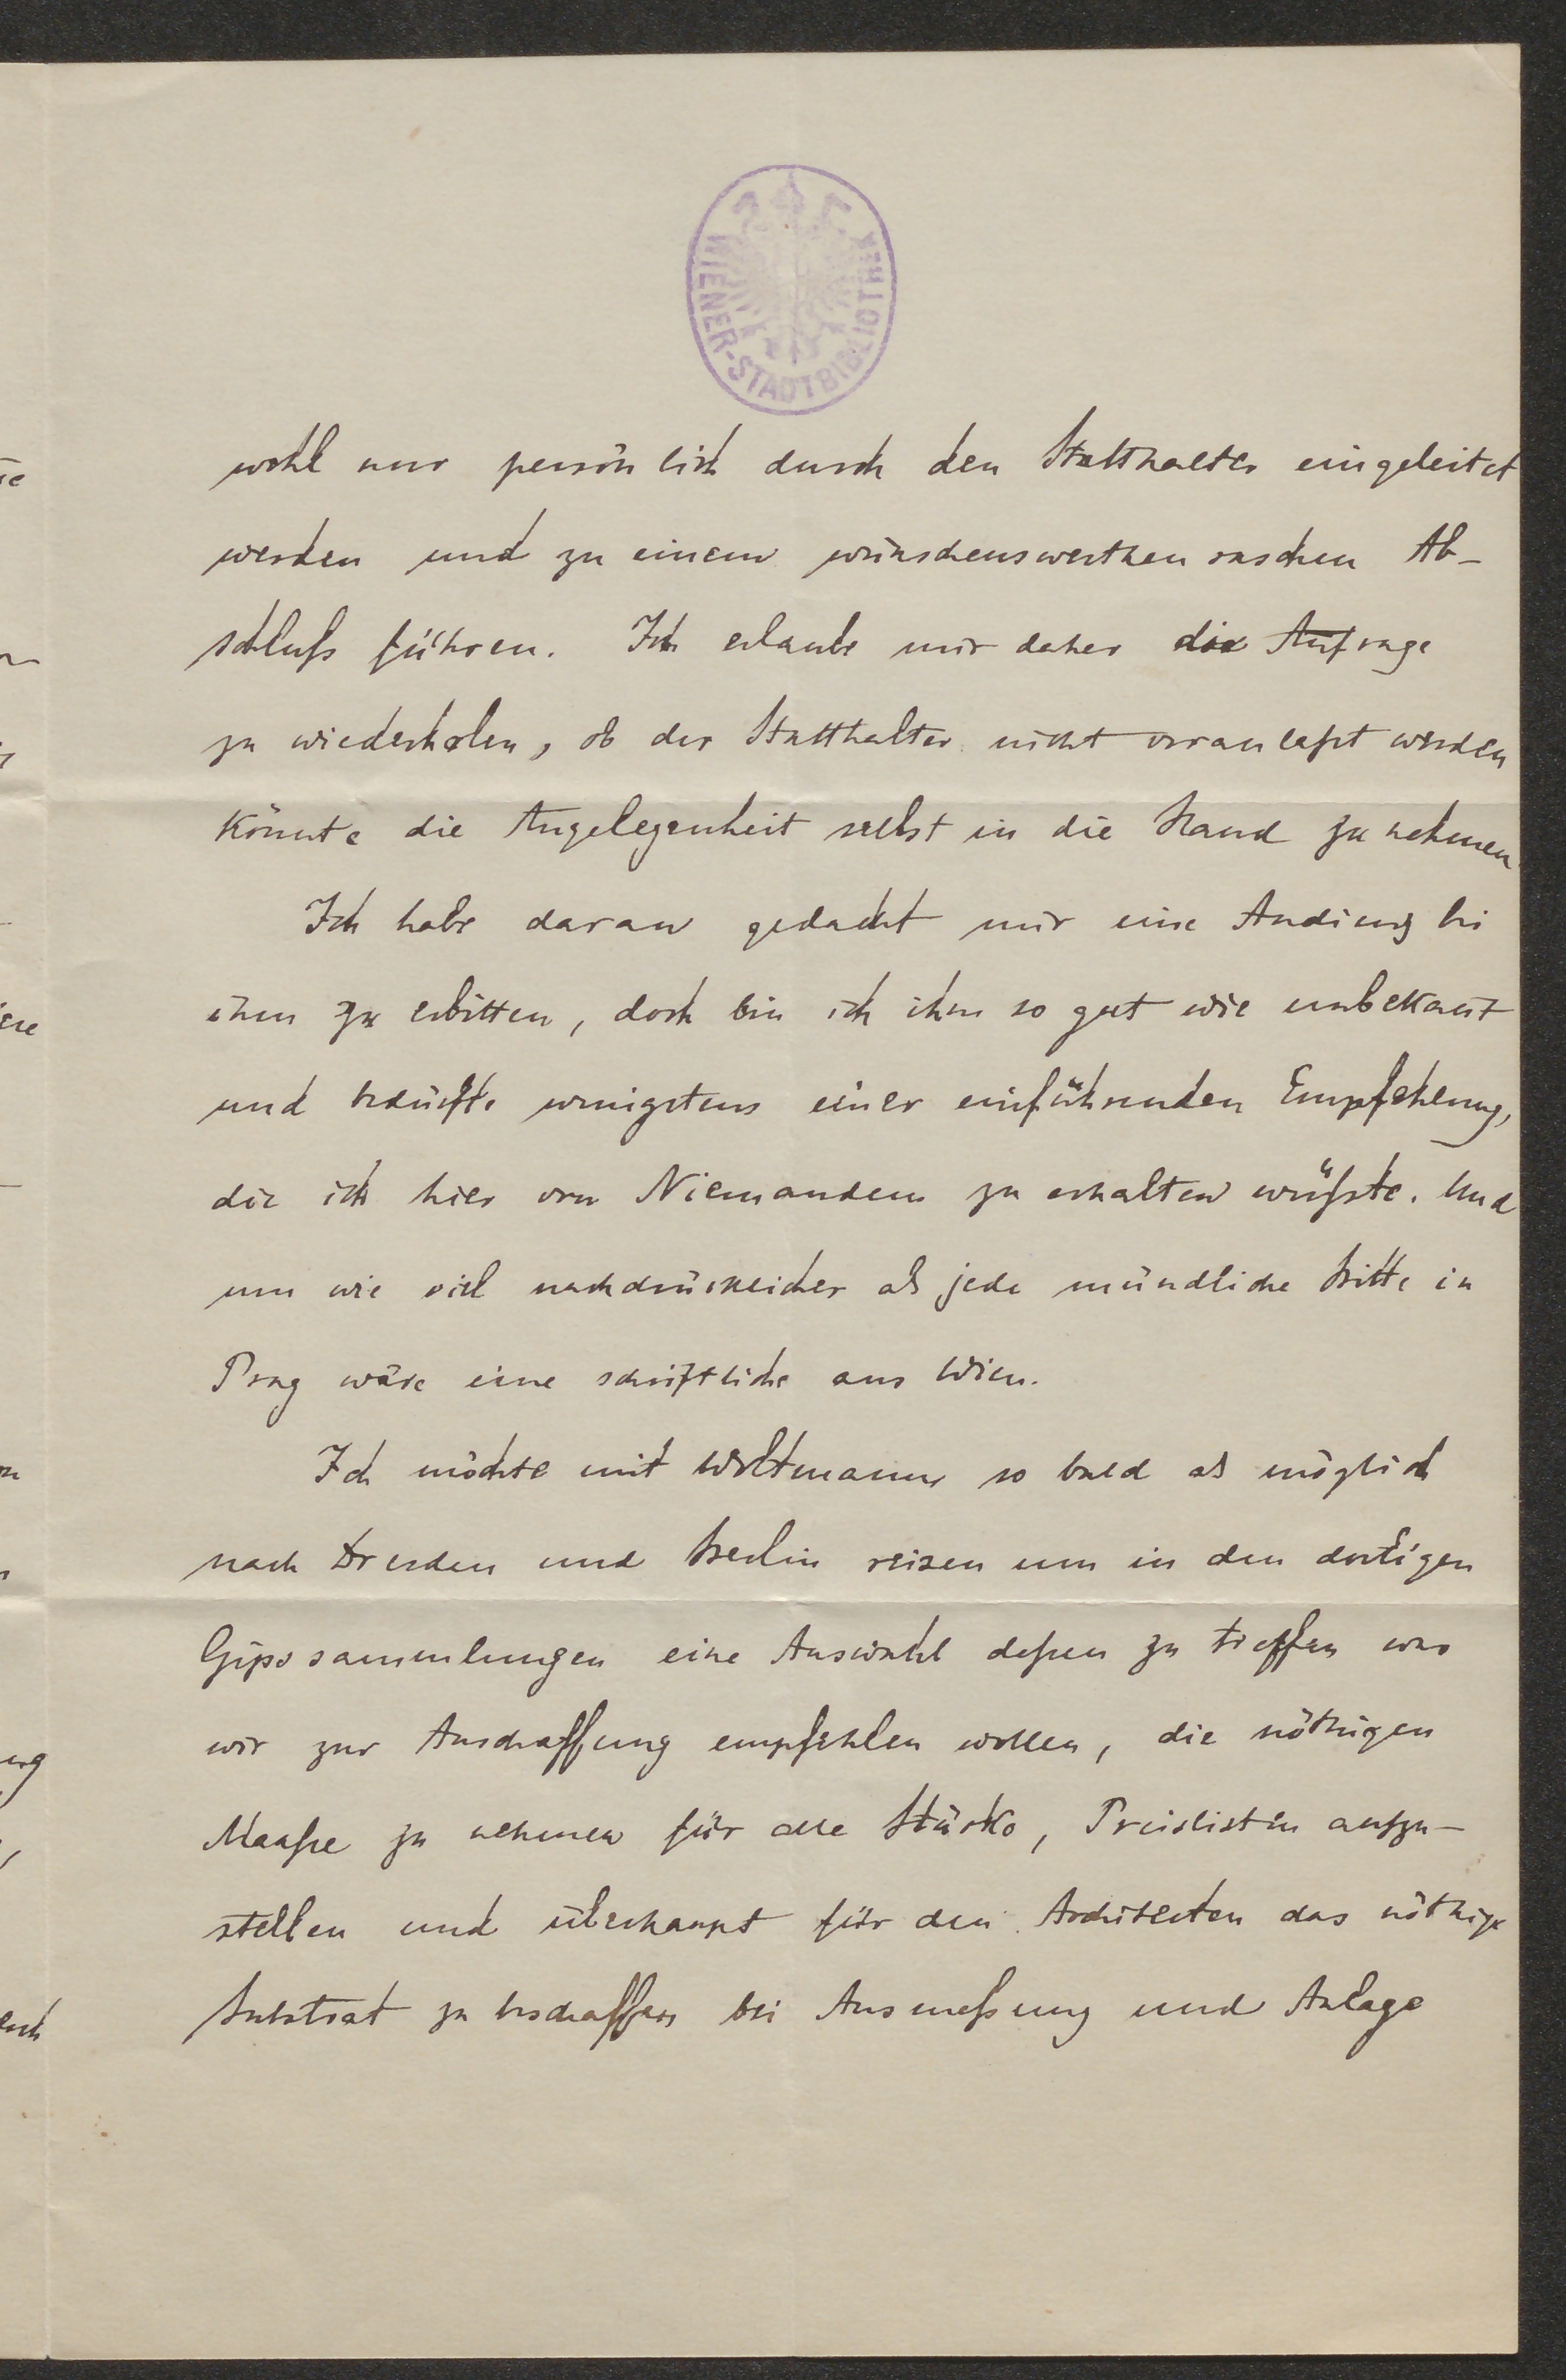 WIENER-STADTBIBLIOTHEK
wohl nur persönlich durch den Statthalter eingeleitet
werden und zu einem wünschenswerthen raschen Ab-
schluß führen. Ich erlaube mir daher die Anfrage
zu wiederholen, ob der Statthalter nicht veranlaßt werden
könnte die Angelegenheit selbst in die Hand zu nehmen.
Ich habe daran gedacht mir eine Audienz bei
ihm zu erbitten, doch bin ich ihm so gut wie unbekannt
und bedürfte wenigstens einer einführenden Empfehlung,
die ich hier von Niemandem zu erhalten wüßte. Und
um wie viel nachdrücklicher als jede mündliche Bitte in
Prag wäre eine schriftliche aus Wien.
Ich möchte mit Woltmann so bald als möglich
nach Dresden und Berlin reisen um in den dortigen
Gipssammlungen eine Auswahl deßen zu treffen was
wir zur Anschaffung empfehlen wollen, die nöthigen
Maaße zu nehmen für alle Stücke, Preislisten aufzu-
stellen und überhaupt für den Architecten das nöthige
Substrat zu beschaffen bei Ausmeßung und Anlage